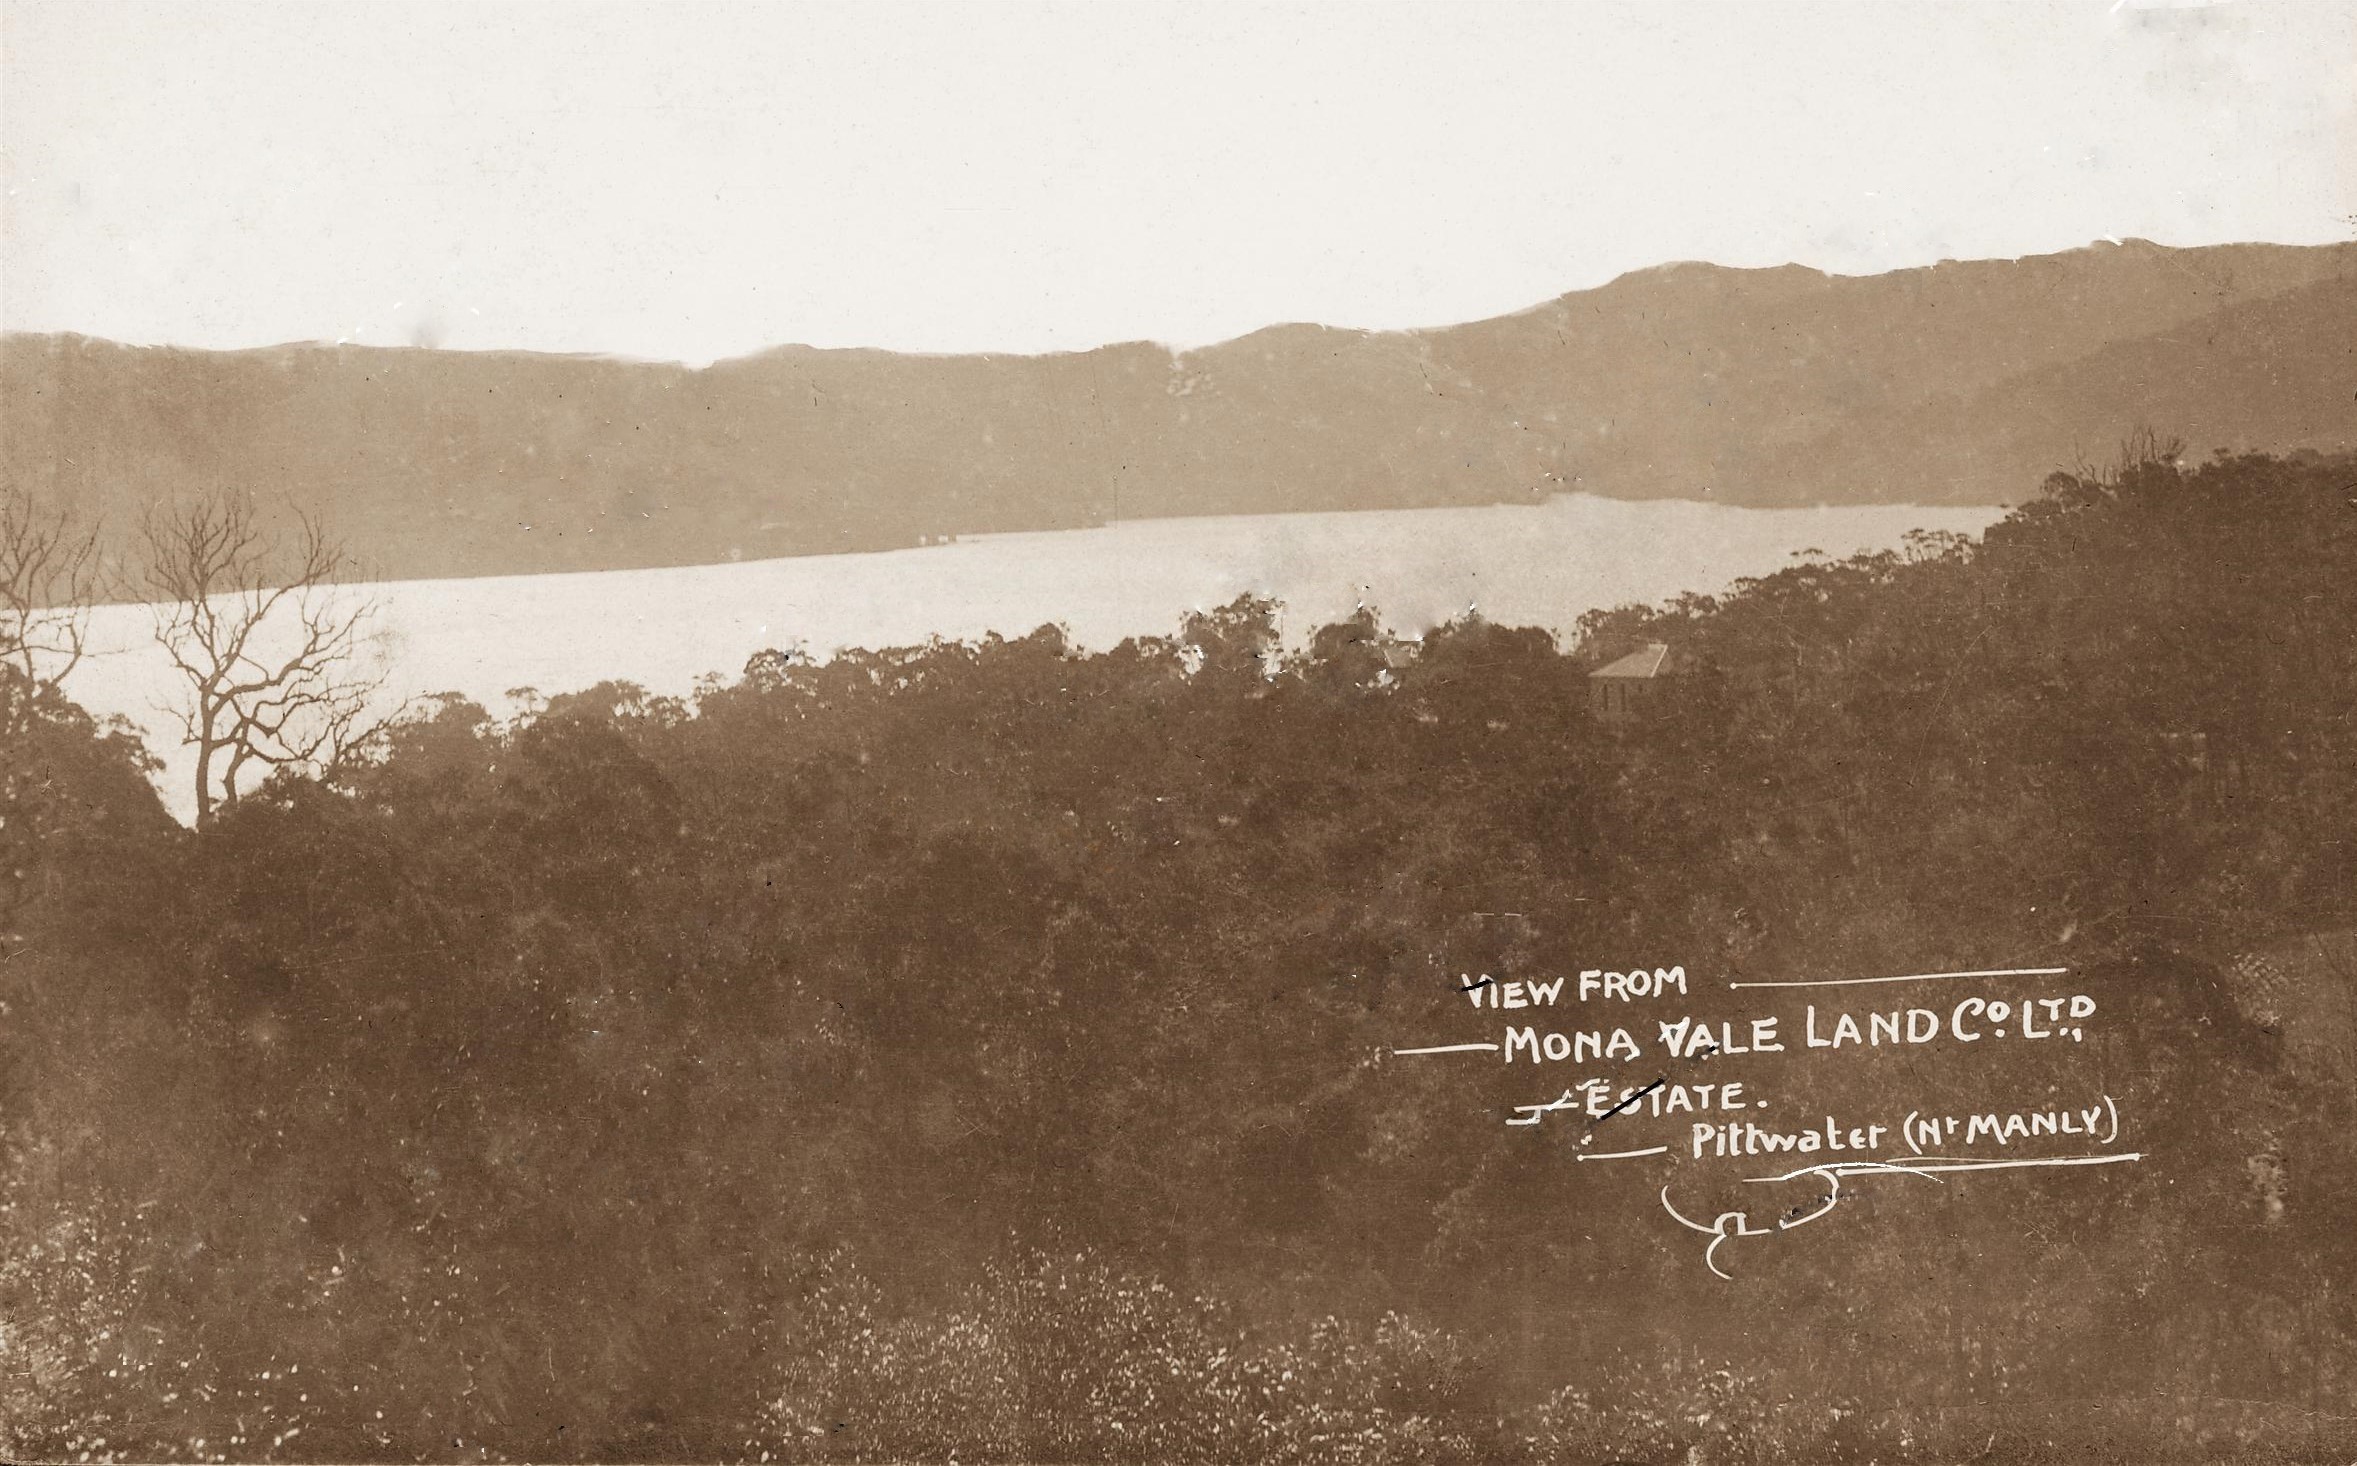 VIEW FROM
MONA VALE LAND Co. LTD.,
ESTATE.
Pittwater (Nr MANLY)